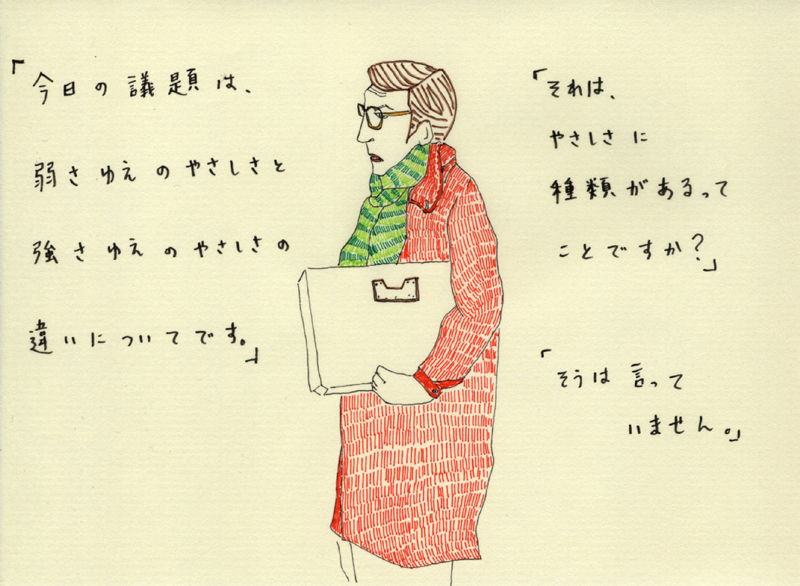 「今日の議題は、
弱さゆえのやさしさと
強さゆえのやさしさの
違いについてです。」
「それは、
やさしさに
種類があるって
ことですか?」
「そうは言って
いません。」